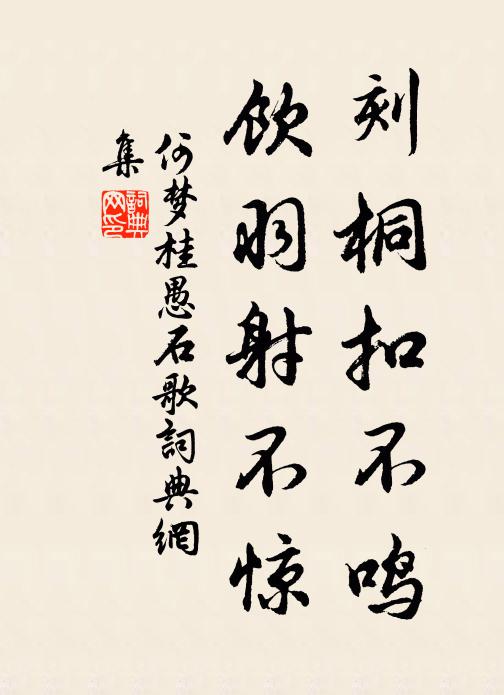 刻桐扣不鸣
饮羽射不惊
何梦桂愚石歌词典網
集
詞典
网印